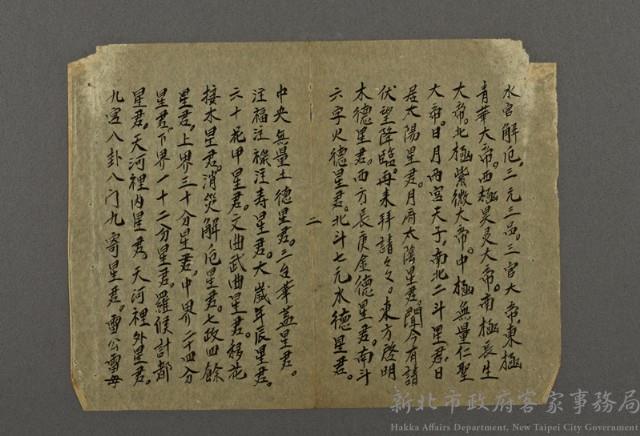 水官解厄。三元三品。三官大帝。東極
青華大帝。西極昊灵大帝。南極長生
大帝。北極紫微大帝。中極無量仁聖
大帝。日月兩宮天子。南北二斗星君。日
君太陽星君。月府太陰星君。聞今有請
伏望降臨。再來拜請々々。東方啓明
木德星君。西方長庚金德星君。南斗
六字火德星君。北斗七元水德星君。
二
中央無量土德星君。三台華蓋星君。
注福注祿注寿星君。大歲年辰星君。
六十花甲星君。文曲武曲星君。移花
接木星君。消災解厄星君。七政四餘
星君。上界三十分星君。中界二十四分
星君。下界一十二分星君。羅候計都
星君。天河裡内星君。天河裡外星君。
九宮八卦八门九寄星君。雷公雷母
新北市政府客家事務局
Hakka Affairs Department, New Taipei City Government